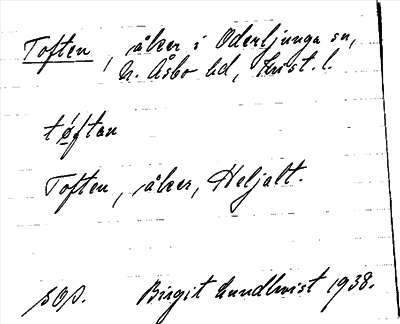 Toften, åker i Oderljunga sn,
N. Åsbo hd, Krist. l.
tøftan
Toften, åker, Heljalt.
SOP. Birgit Lundkvist 1938.